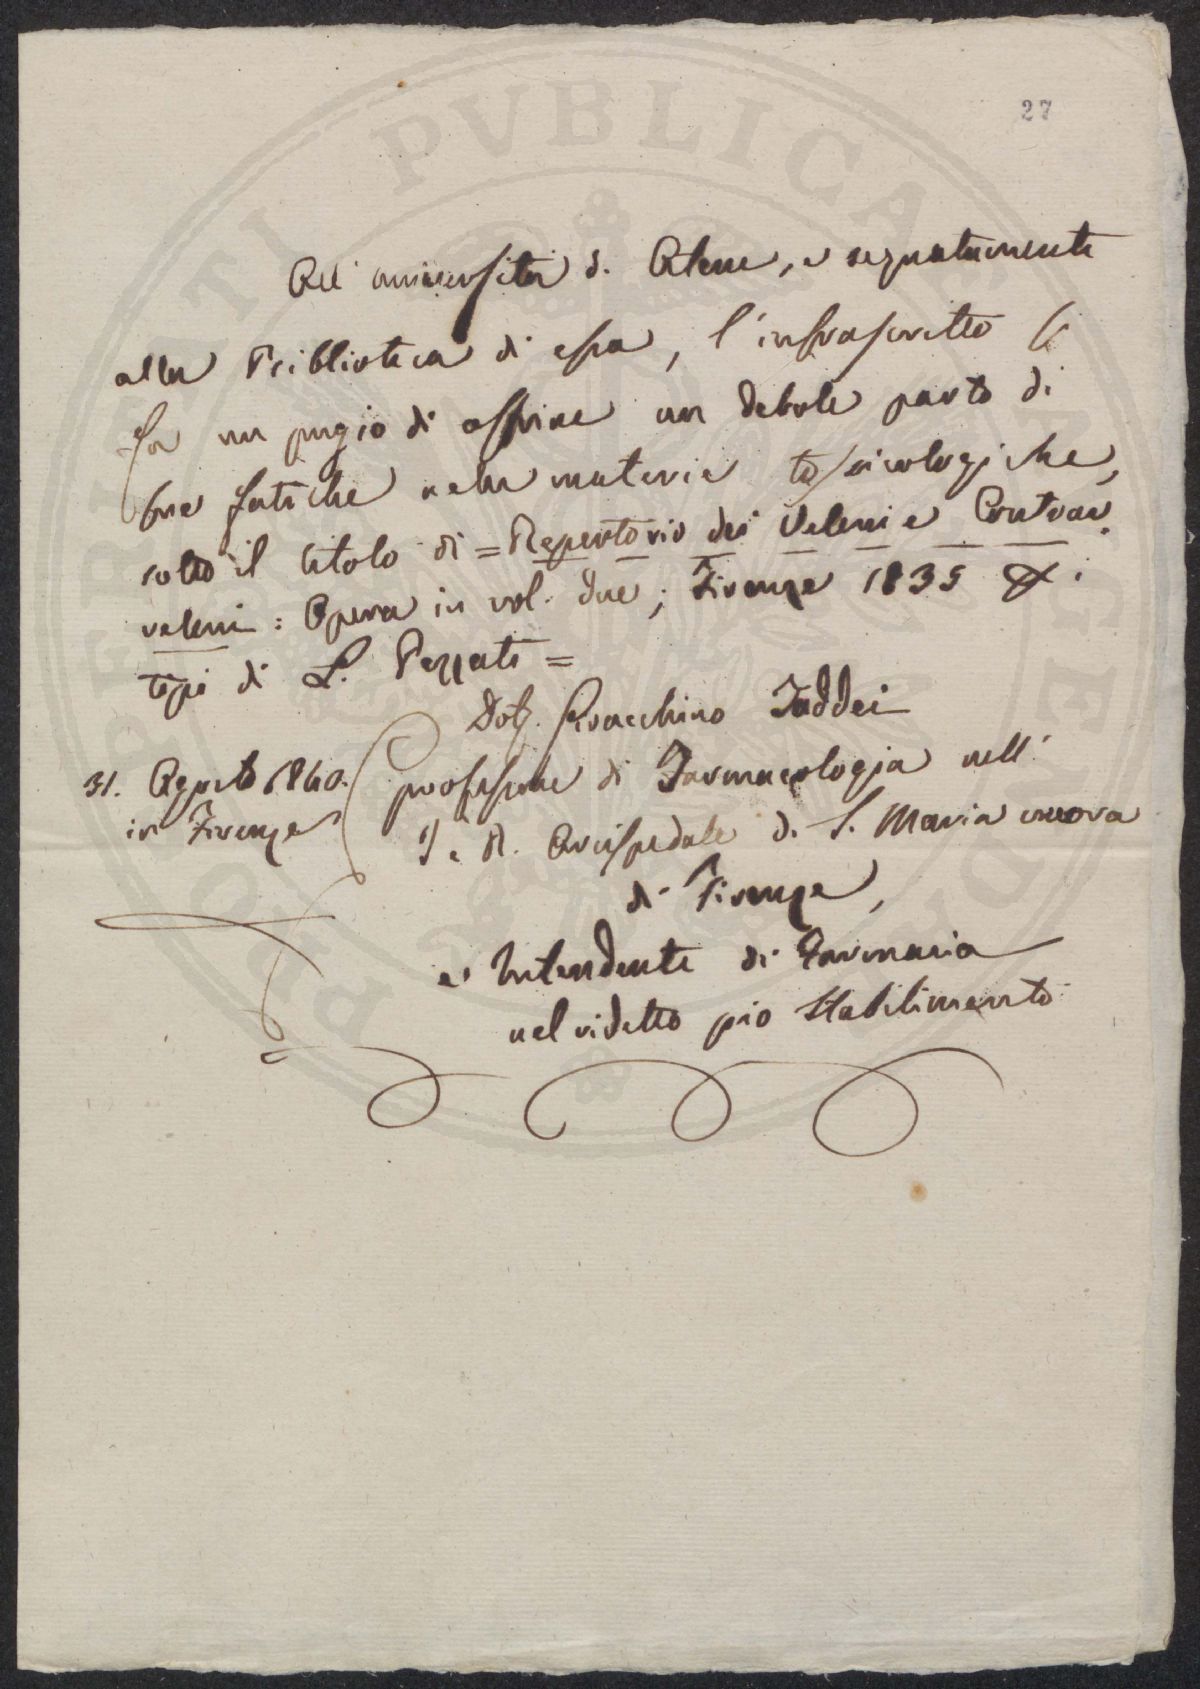 27
All' università di Atene, e segnatamente
alla Biblioteca di essa, l'infrascritto si
fa un pregio di offrire un debole parto di
sue fatiche nelle materie tossicologiche,
sotto il titolo di = Repertorio dei Veleni e Contrav
veleni: Opera in vol. due; Firenze 1835
tipi di L. Pezzati =
Dott. Gioacchino Taddei
31. Agosto 1840. professore di Farmacologia nell'
in Firenze I. e R. Arcispedale di S. Maria nuova
di Firenze,
e Intendente di Farmacia
nel ridetto pio Stabilimento